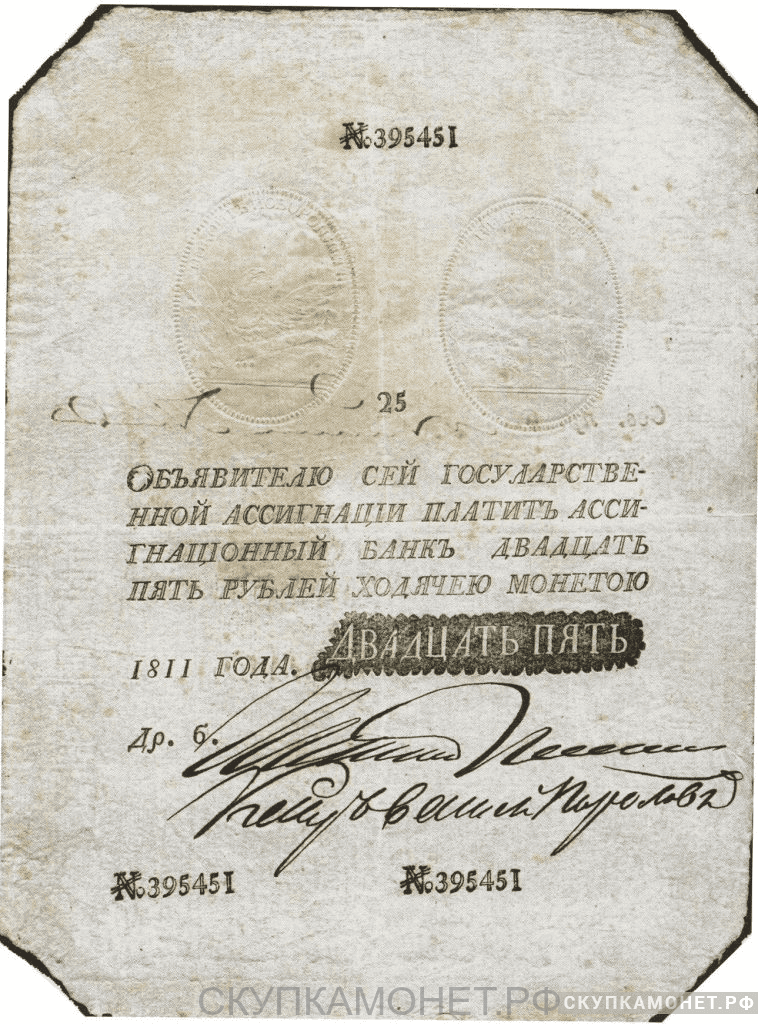 №395451
25
ОБЪЯВИТЕЛЮ СЕЙ ГОСУДАРСТВЕ-
ННОЙ АССИГНАЦІИ ПЛАТИТЪ АССИ-
ГНАЦІОННЫЙ БАНКЪ ДВАДЦАТЬ
ПЯТЬ РУБЛЕЙ ХОДЯЧЕЮ МОНЕТОЮ
ДВАДЦАТЬ ПЯТЬ
1811 ГОДА.
Др. б.
№395451 №395451
СКУПКАМОНЕТ.РФ
СКУПКАМОНЕТ.РФ